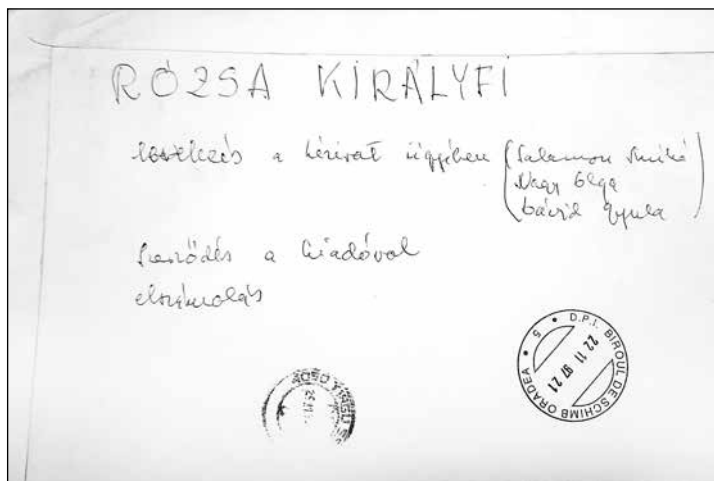 RÓZSA KIRÁLYFI
levelezés a kézirat ügyében (Salamon Anikó
Nagy Olga
Dávid Gyula)
Szerződés a kiadóval
elszámolás
D.P.I. BIROUL DE SCHIMB ORADEA * 5 *
22 11 97 21